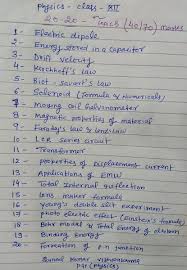 Physics - class - XII
20-20 - Track (40/70) marks
1- Electric dipole
2- Energy stored in a capacitor
3- Drift velocity
4- Kirchhoff's law
5- Biot-savart's law
6- Solenoid (formula & numericals)
7- Moving coil Galvanometer
8- Magnetic properties of material
9- Faraday's law & lenz's law
10- LCR series circuit
11- Transformer
12- properties of displacement current
13- Applications of EMW
14- Total internal reflection
15- Lens maker formula
16- Young's double slit experiment
17- photo electric effect (Einstein's formula)
18- Bohr model & Total energy of electron
19- Binding energy
20- Formation of p-n junction
Kumar Vishwakarma
PGT (Physics)